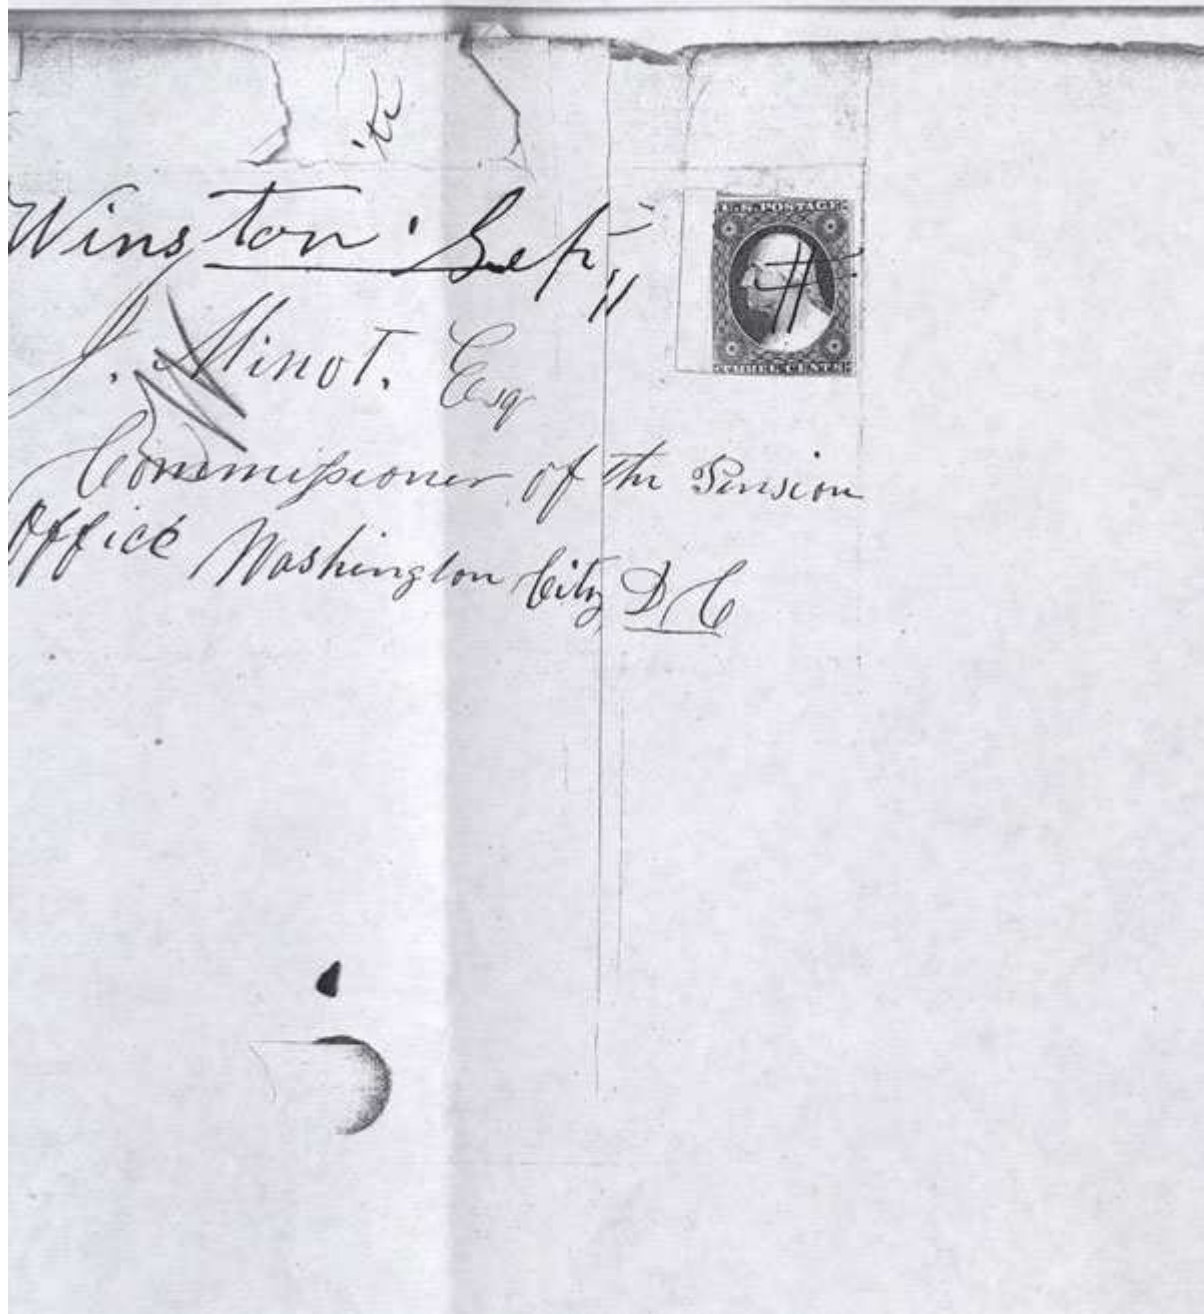 Winston Sept 11
U.S. POSTAGE
J. Minot. Esq
THREE CENTS
Commissioner of the Pension
Office Washington City D C